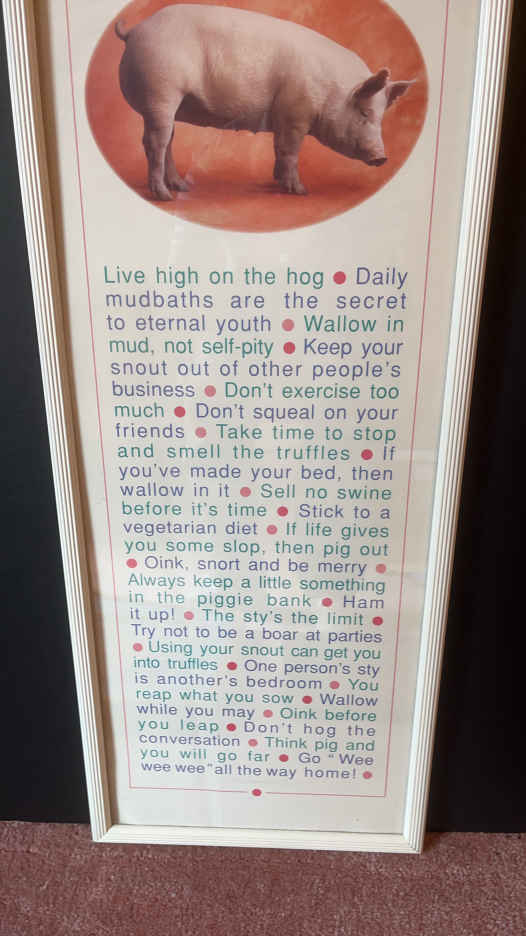 Live high on the hog ● Daily
mudbaths are the secret
to eternal youth ● Wallow in
mud, not self-pity ● Keep your
snout out of other people's
business ● Don't exercise too
much ● Don't squeal on your
friends ● Take time to stop
and smell the truffles ● If
you've made your bed, then
wallow in it ● Sell no swine
before it's time ● Stick to a
vegetarian diet ● If life gives
you some slop, then pig out
● Oink, snort and be merry ●
Always keep a little something
in the piggie bank ● Ham
it up! ● The sty's the limit ●
Try not to be a boar at parties
● Using your snout can get you
into truffles ● One person's sty
is another's bedroom ● You
reap what you sow ● Wallow
while you may ● Oink before
you leap ● Don't hog the
conversation ● Think pig and
you will go far ● Go "Wee
wee wee" all the way home! ●